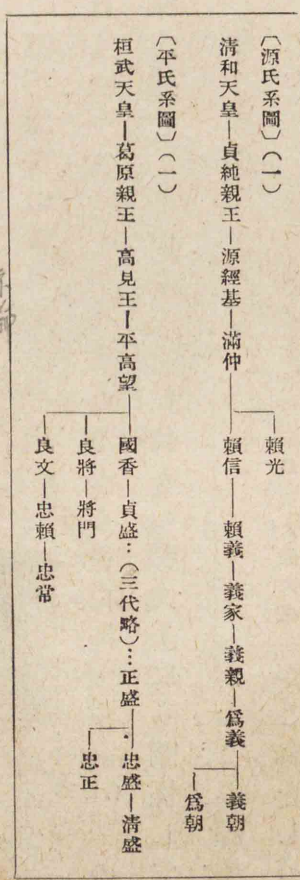 〔源氏系圖〕(一)
賴光
淸和天皇―貞純親王―源經基―滿仲―賴信―賴義―義家―義親―爲義―義朝
爲朝
〔平氏系圖〕(一)
桓武天皇―葛原親王―高見王―平高望―國香―貞盛…(三代略)…正盛―忠盛―淸盛
忠正
良將―將門
良文―忠賴―忠常